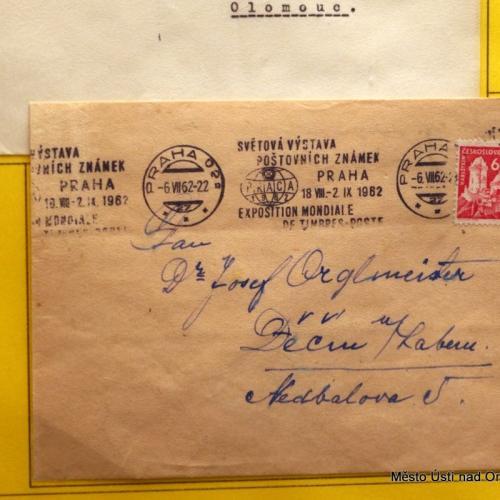 Olomouc.
VÝSTAVA
VNÍCH ZNÁMEK
PRAHA
18 VIII.-2. IX 1962
N MONDIALE
TIMBRES-POSTE
PRAHA 022
-6.VII62-22
SVĚTOVÁ VÝSTAVA
POŠTOVNÍCH ZNÁMEK
PRAGA
PRAHA
1962
18 VIII.-2. IX 1962
EXPOSITION MONDIALE
DE TIMBRES-POSTE
PRAHA
-6.VII62-2
ČESKOSLOVE
6
Pan
Dr Josef Orglmeister
Děčín n/Labem.
Nedbalova 5.
Město Ústí nad Or